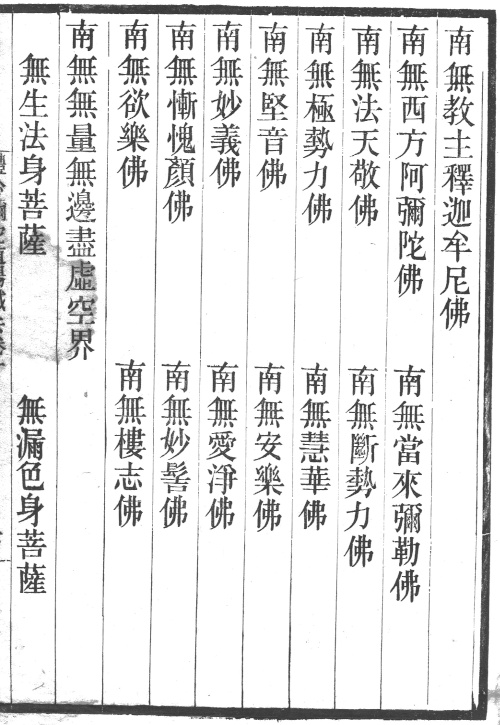 南無教主釋迦牟尼佛
南無西方阿彌陀佛　南無當來彌勒佛
南無法天敬佛　南無斷勢力佛
南無極勢力佛　南無慧華佛
南無堅音佛　南無安樂佛
南無妙義佛　南無愛淨佛
南無慚愧顏佛　南無妙髻佛
南無欲樂佛　南無樓志佛
南無無量無邊盡虛空界
無生法身菩薩　無漏色身菩薩